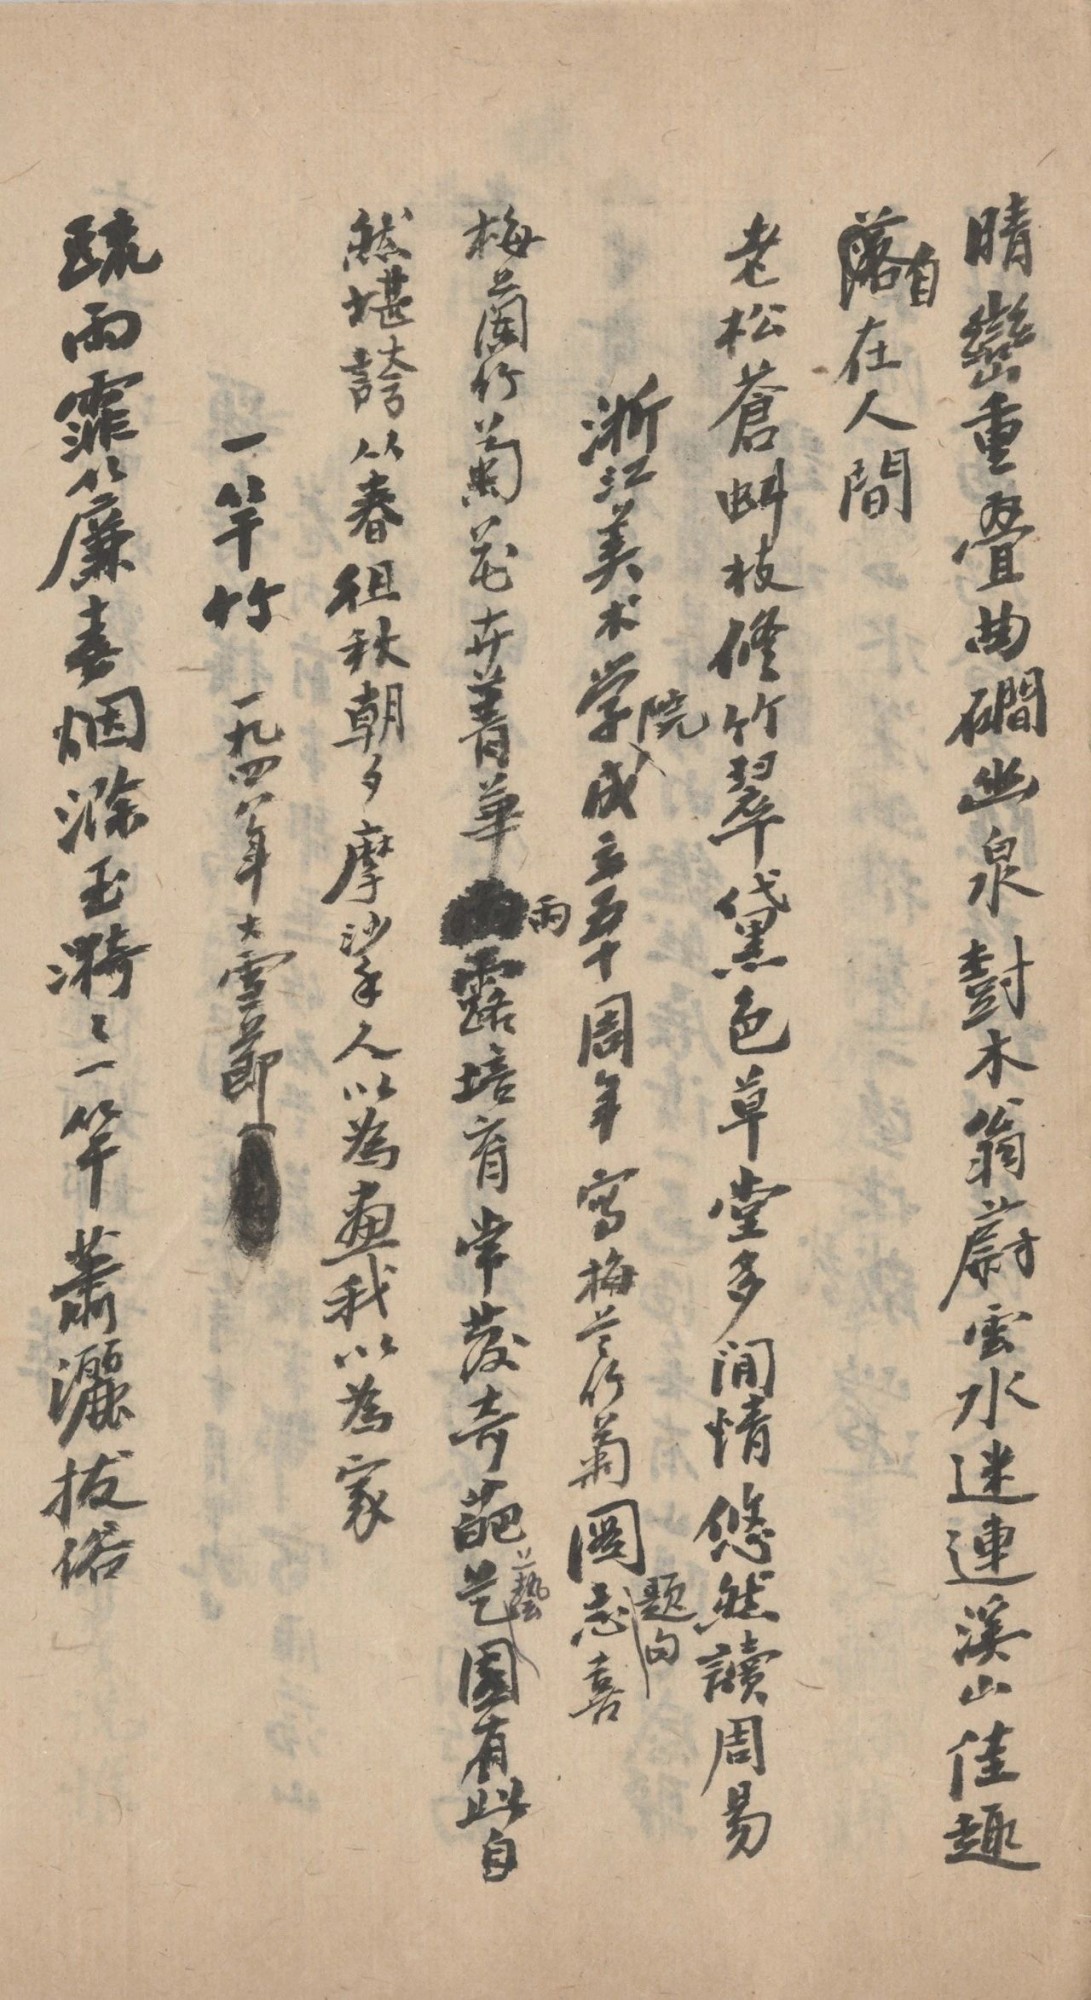 晴巒重疊曲磵幽泉封木蓊蔚雲水迷連溪山佳趣
自落在人間
老松蒼虯枝修竹翠黛色草堂多閒情悠然讀周易
浙江美术学院成立五十周年寫梅兰竹菊圖題句志喜
梅蘭竹菊花卉菁華雨露培育常發奇葩藝園有此自
然堪誇从春徂秋朝夕摩挲人以為畫我以為家
一竿竹 一九四八年大雪節
疏雨霏簾春烟滌玉漪〻一竿蕭灑拔俗